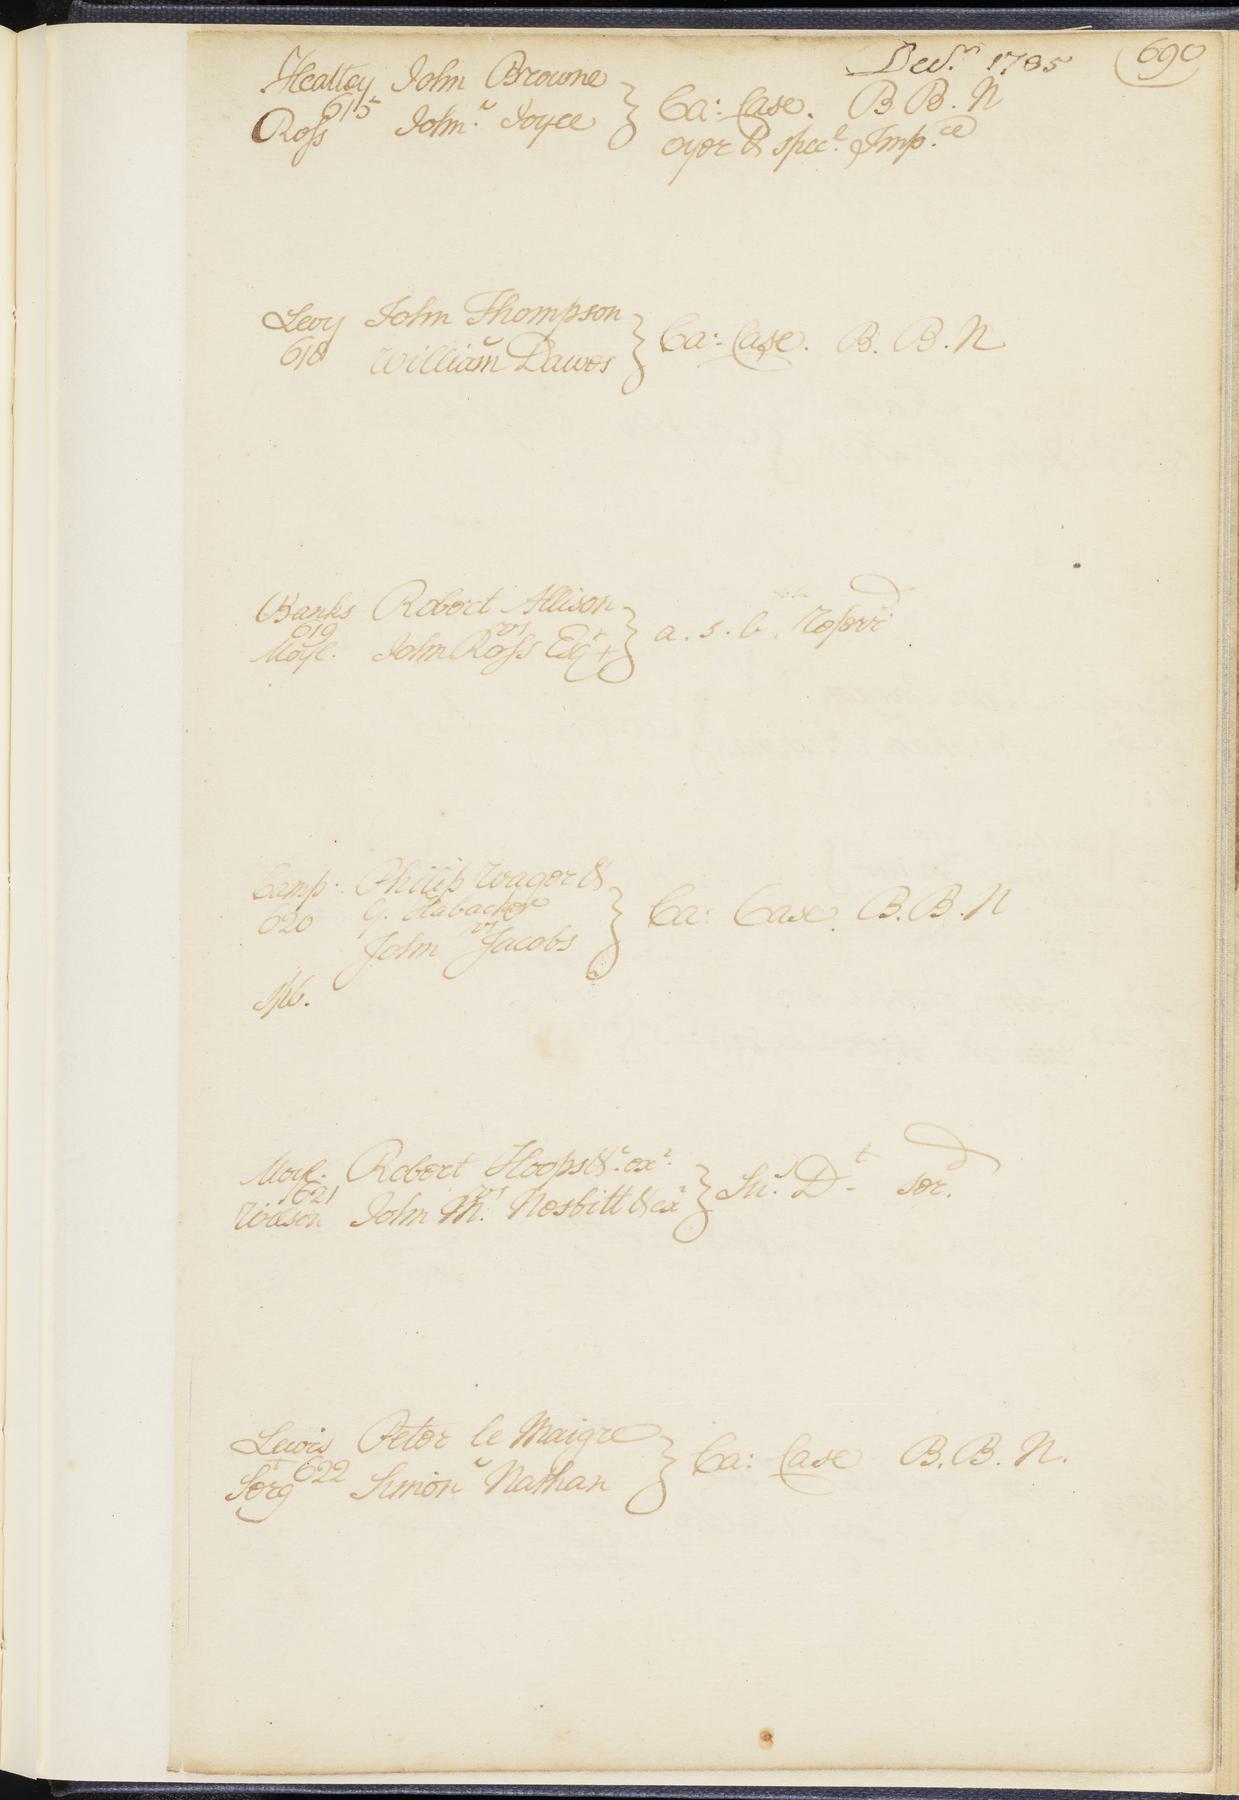 Decr. 1785 690
Heatley John Browne
615 v Ca: Case. B. B. N
Ross John Joyce
oyer & specl. Impce
Levy John Thompson
618 v Ca: Case. B. B. N
William Dawes
Banks Robert Allison
619 vs a. s. b.
Moyl. John Ross Esqr
Camp. Philip Wager &
620 G. Habacker Ca: Case. B. B. N
vs
John Jacobs
Moyl. Robert Hoops & ex
621 vs Su. Dt.
Wilson John M. Nesbitt & ex
Lewis Peter le Maigre
622 v Ca: Case B. B. N.
Sergt Simon Nathan